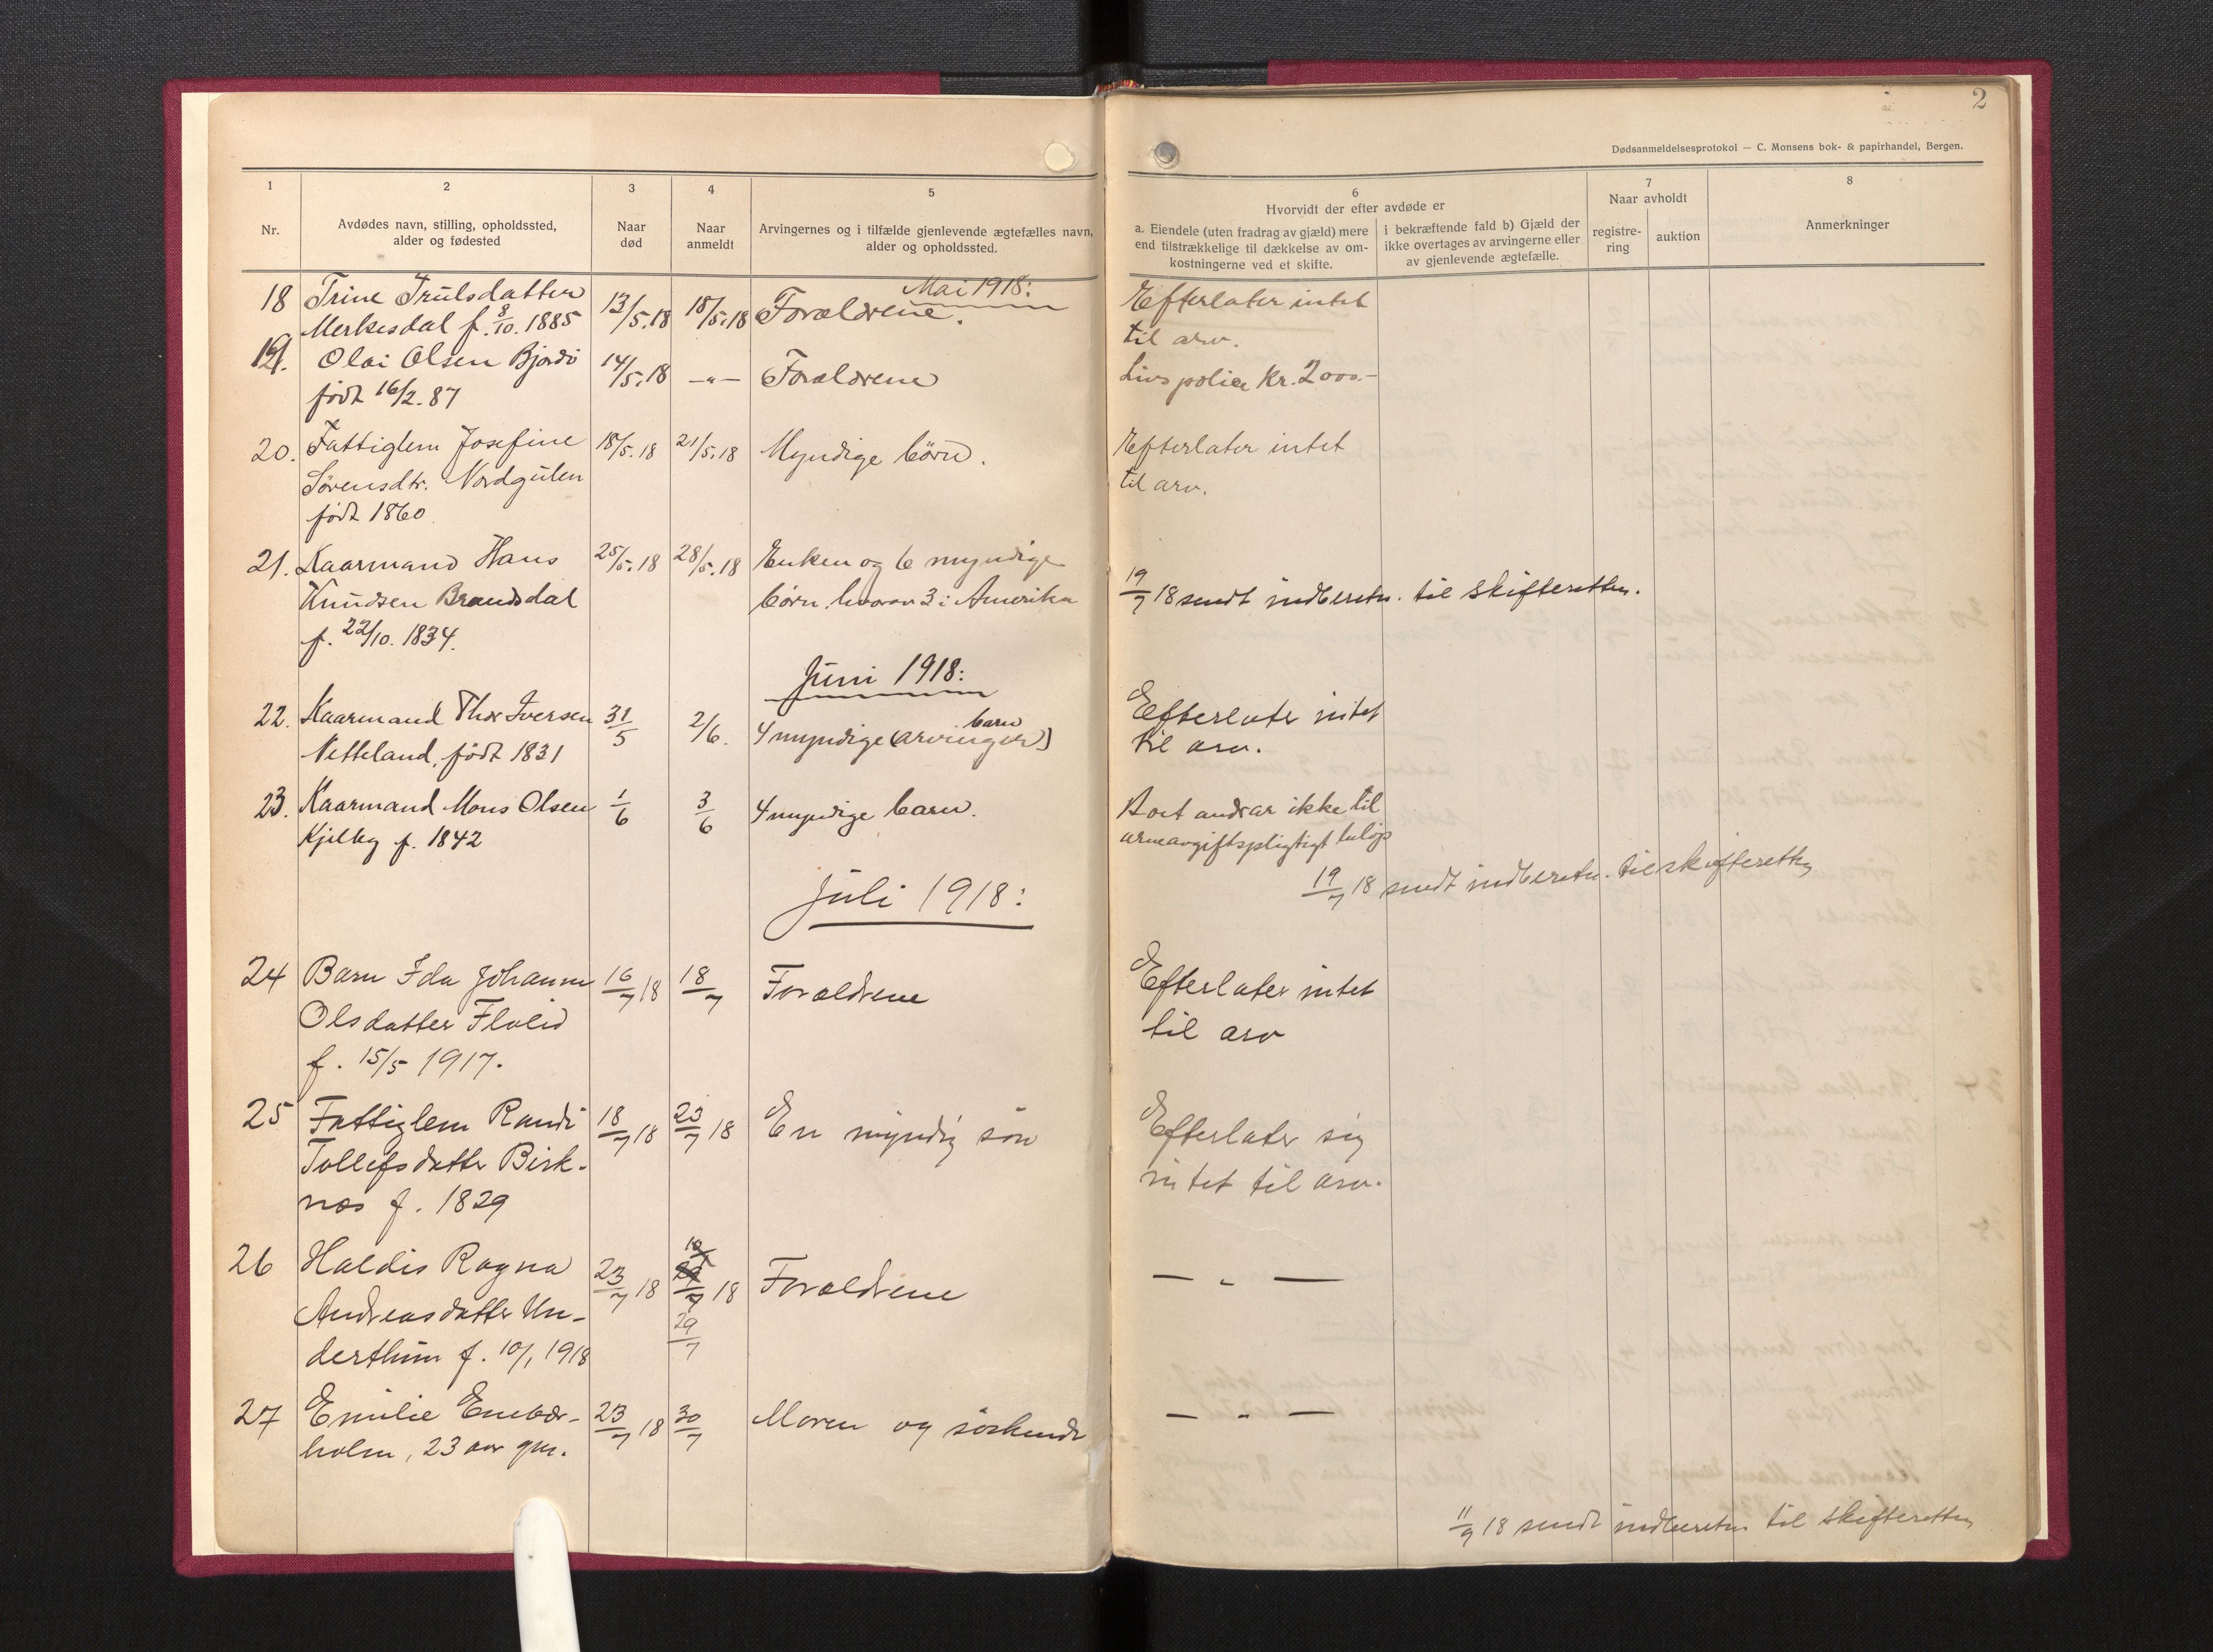 2
Dødsanmeldelsesprotokol — C. Monsens bok- & papirhandel, Bergen.
1
Nr.
2
Avdødes navn, stilling, opholdssted,
alder og fødested
3
Naar
død
4
Naar
anmeldt
5
Arvingernes og i tilfælde gjenlevende ægtefælles navn,
alder og opholdssted.
6
Hvorvidt der efter avdøde er
a. Eiendele (uten fradrag av gjæld) mere
end tilstrækkelige til dækkelse av om-
kostningerne ved et skifte.
i bekræftende fald b) Gjæld der
ikke overtages av arvingerne eller
av gjenlevende ægtefælle.
7
Naar avholdt
registre-
ring
auktion
8
Anmerkninger
Mai 1918:
18 Trine Trulsdatter 13/5.18 18/5.18 Forældrene. Efterlater intet
Merkesdal f. 8/10. 1885 til arv.
19. Olai Olsen Bjordi 14/5.18 —"— Forældrene Livspolice Kr. 2000.-
født 16/2. 87
20. Fattiglem Josefine 18/5.18 21/5.18 Myndige børn. Efterlater intet
Sørensdtr. Nordgulen til arv.
født 1860
21. Kaarmand Hans 25/5.18 28/5.18 Enken og 6 myndige
Knudsen Brandsdal børn, hvorav 3 i Amerika 19/7 18 sendt indberetn. til skifteretten.
f. 22/10. 1834.
Juni 1918:
22. Kaarmand Thor Iversen 31/5 2/6. 4 myndige (arvinger) barn Efterlater intet
Netteland, født 1831 til arv.
23. Kaarmand Mons Olsen 1/6 3/6 4 myndige barn. Boet andrar ikke til
Kjelby f. 1842 arveavgiftspligtigt beløp
19/7 18 sendt indberetn. til skifteretten
Juli 1918:
24 Barn Ida Johanne 16/7 18 18/7 Forældrene Efterlater intet
Olsdatter Flolid til arv
f. 15/5 1917.
25 Fattiglem Randi 18/7 18 23/7 18 En myndig søn Efterlater sig
Tollefsdatter Birk- intet til arv.
nes f. 1829
26 Haldis Ragna 23/7 18 29/7 18 Forældrene — " —
Andreasdatter Un- 29/7
derthun f. 10/1 1918
27 Emilie Enebær- 23/7 18 30/7 Moren og søskende — " —
holm, 23 aar gm.
11/9 18 sendt indberetn til skifteretten